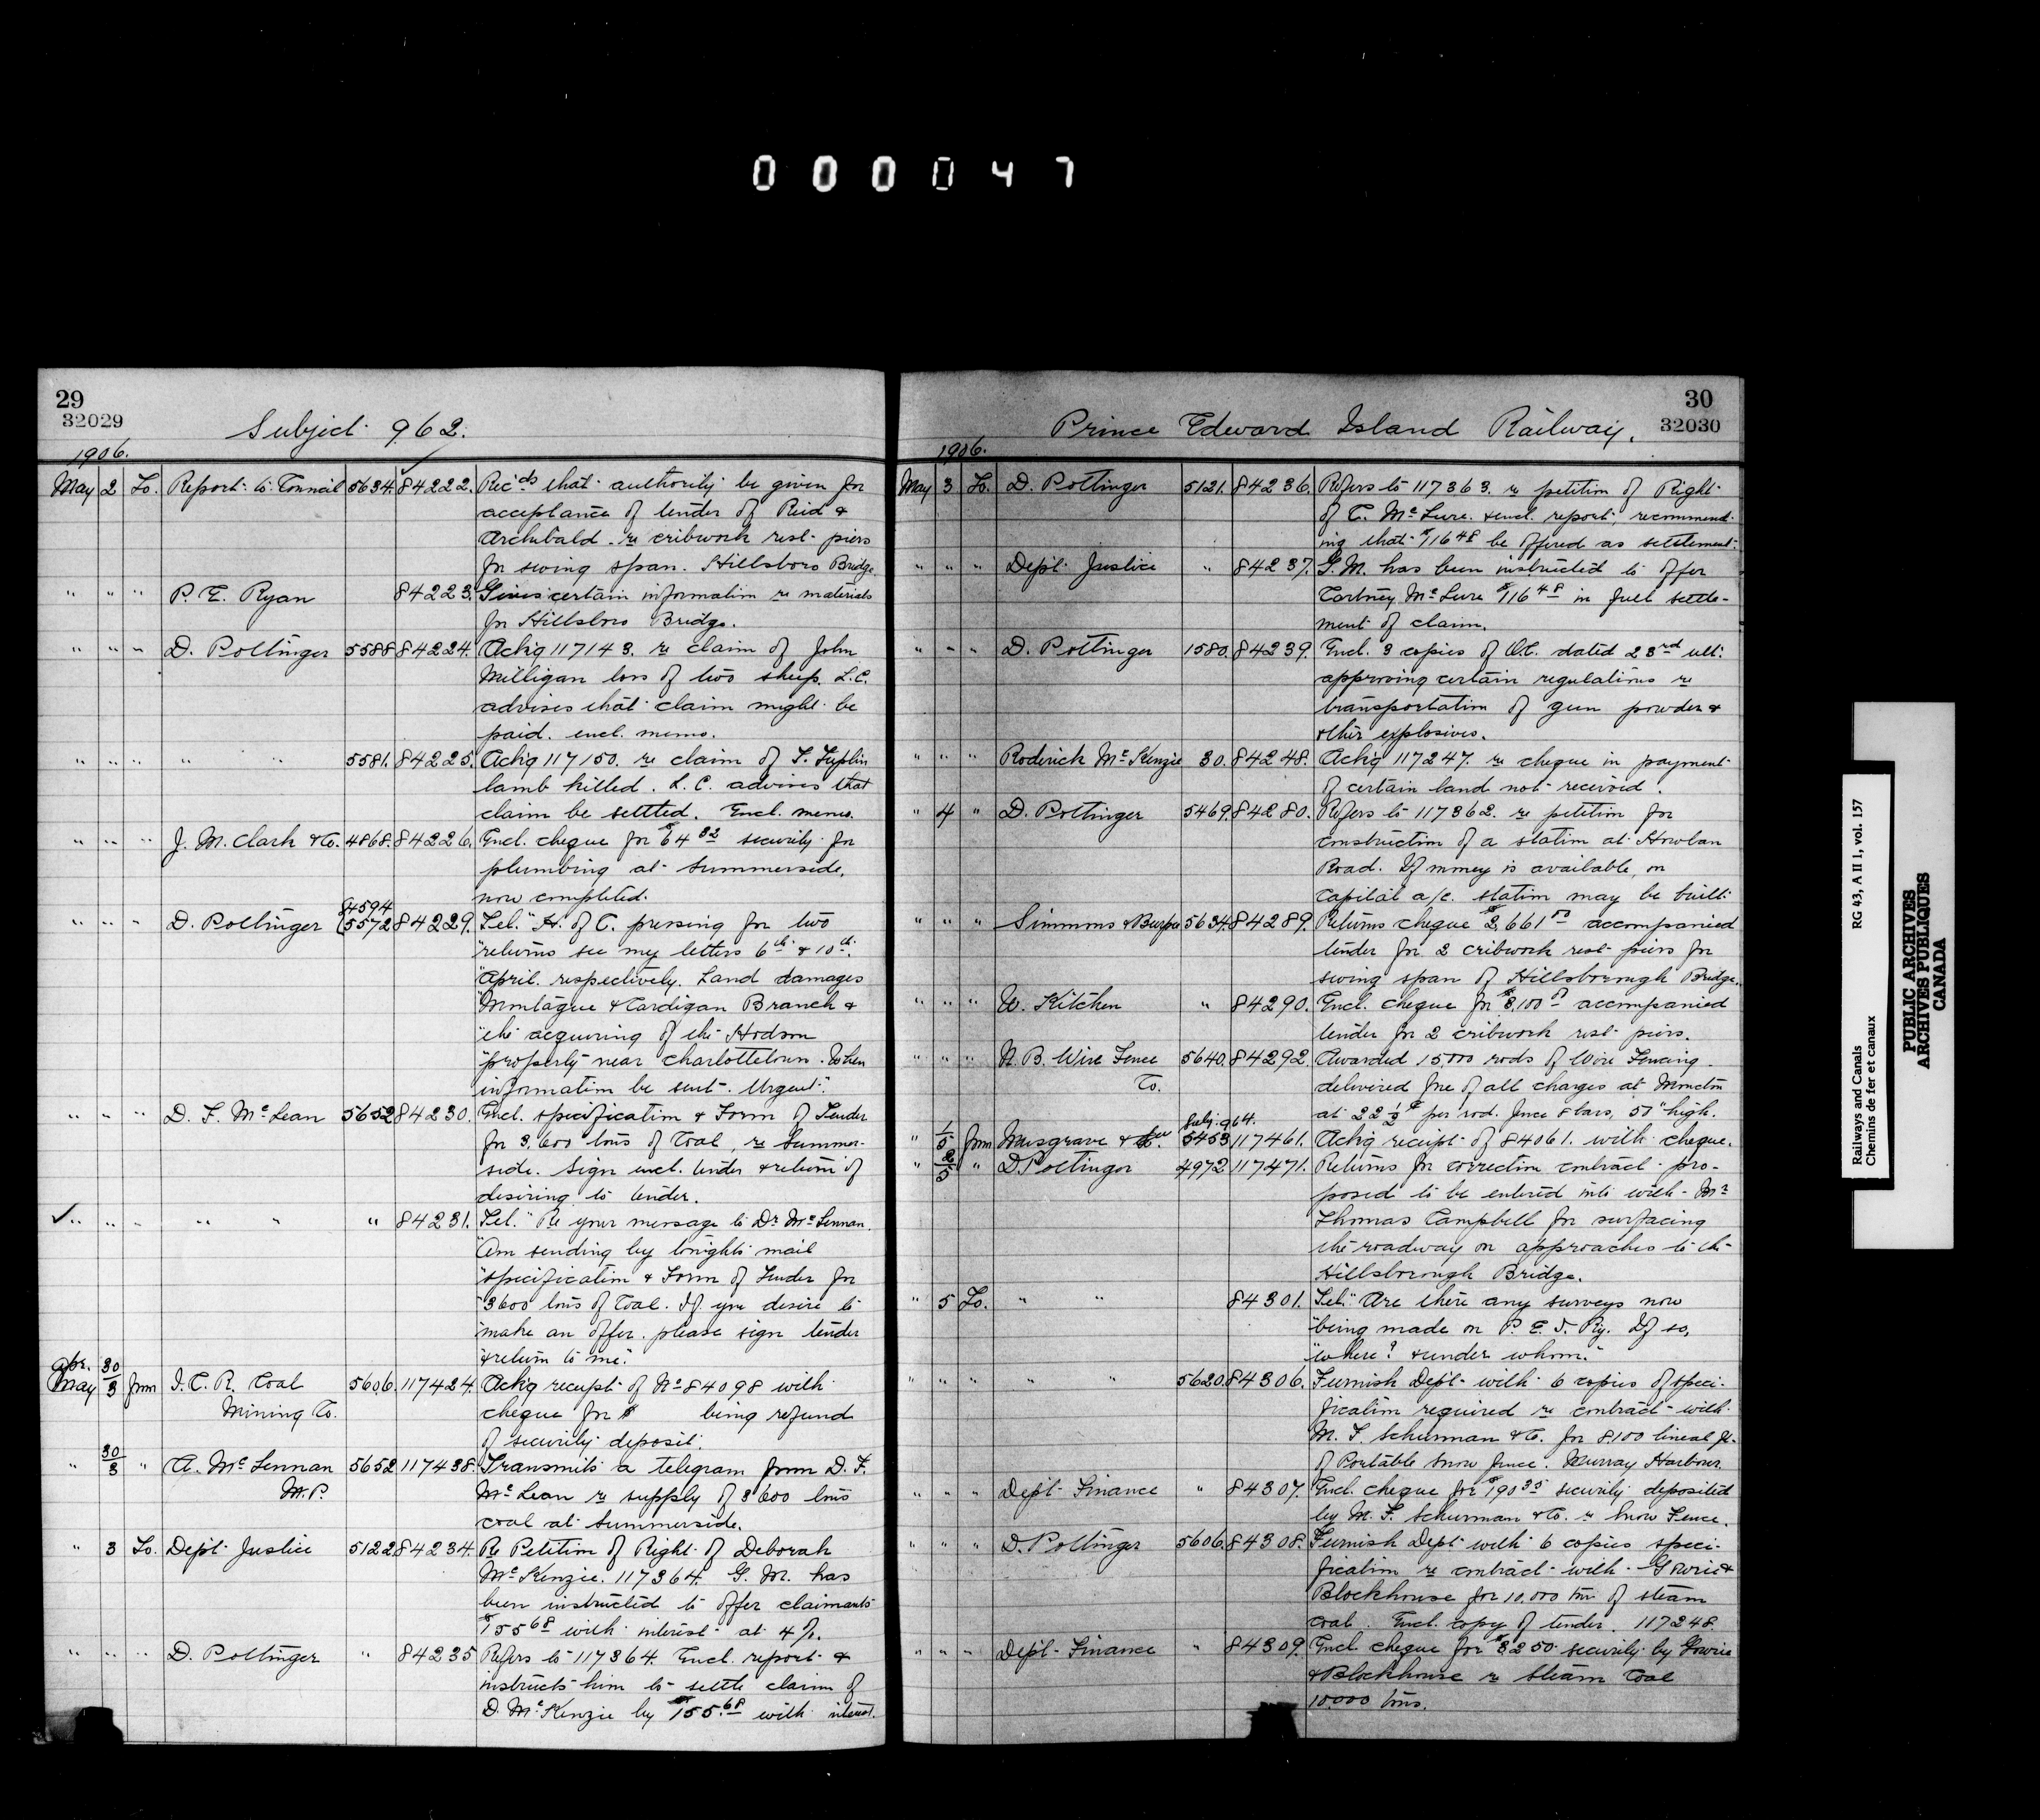 000047
29
32029
Subject 962.
1906.
May 2 To. Report to Council 5634. 84222. Recds that authority be given for
acceptance of tender of Reid &
Archibald re cribwork rest piers
for swing span. Hillsboro Bridge.
" " " P. E. Ryan 84223. Gives certain information re materials
for Hillsboro Bridge.
" " " D. Pottinger 5588 84224. Ackg 117143. re claim of John
Milligan loss of two sheep. L.C.
advises that claim might be
paid. encl. memo.
" " " " " 5581. 84225. Ackg 117150. re claim of T. Tuplin
lamb killed. L.C. advises that
claim be settled. Encl. memo.
" " " J. M. Clark & Co. 4868. 84226. Encl. cheque for $64 32 security for
plumbing at Summerside,
now completed.
4594
" " " D. Pottinger 5572 84229. Tel. "H. of C. pressing for two
"returns see my letters 6th & 10th
"April. respectively. Land damages
"Montague & Cardigan Branch &
"the acquiring of the Hodson
"property near Charlottetown. When
information be sent. Urgent."
" " " D. F. McLean 5652 84230. Encl. specification & Form of Tender
for 3,600 tons of Coal, re Summer-
side. Sign encl. tender & return if
desiring to tender.
" " " " " " 84231. Tel. "Re your message to Dr McLennan.
"Am sending by tonights mail
"specification & Form of Tender for
"3600 tons of Coal. If you desire to
"make an offer. please sign tender
"& return to me."
Apr. 30
May 3 from I. C. R. Coal 5606. 117424. Ackg receipt of No 84098 with
Mining Co. cheque for $ being refund
of security deposit.
" 30/3 " A. McLennan 5652 117438. Transmits a telegram from D. F.
M.P. McLean re supply of 3600 tons
coal at Summerside.
" 3 To. Dept Justice 5122 84234. Re Petition of Right of Deborah
McKenzie. 117364. G. M. has
been instructed to offer claimants
$155 68 with interest at 4%.
" " " D. Pottinger " 84235 Refers to 117364. Encl. report &
instructs him to settle claim of
D. McKenzie by $155.68 with interest.
30
32030
Prince Edward Island Railway.
1906.
May 3 To. D. Pottinger 5121. 84236. Refers to 117363. re petition of Right
of C. McLure. & encl. report, recommend-
ing that $116 48 be offered as settlement.
" " " Dept Justice " 84237. G. M. has been instructed to offer
Cartney McLure $116 48 in full settle-
ment of claim.
" " " D. Pottinger 1580. 84239. Encl. 3 copies of O.C. dated 23rd ult.
approving certain regulations re
transportation of gun powder &
other explosives.
" " " Roderick McKenzie 30. 84248. Ackg 117247. re cheque in payment
of certain land not received.
" 4 " D. Pottinger 5469. 84280. Refers to 117362. re petition for
construction of a station at Howlan
Road. If money is available, on
Capital a/c. station may be built.
" " " Simmons & Burpee 5634. 84289. Returns cheque $2,661 accompanied
tender for 2 cribwork rest piers for
swing span of Hillsborough Bridge.
" " " W. Kitchen " 84290. Encl. cheque for $3,100 accompanied
tender for 2 cribwork rest piers.
" " " N. B. Wire Fence 5640. 84292. Awarded 15,000 rods of Wire Fencing
Co. delivered free of all charges at Moncton
at 22 1/2 ¢ per rod. fence 8 bars, 50" high.
Subj. 964.
" 1/5 from Musgrave & Co. 5453 117461. Ackg receipt of 84061. with cheque.
" 2/5 " D. Pottinger 4972 117471. Returns for correction contract pro-
posed to be entered into with Mr
Thomas Campbell for surfacing
the roadway on approaches to the
Hillsborough Bridge.
" 5 To. " " 84301. Tel. "Are there any surveys now
"being made on P. E. I. Ry. If so,
"where? & under whom."
" " " " " 5620. 84306. Furnish Dept with 6 copies of speci-
fication required re contract with
M. F. Schurman & Co. for 8,100 lineal ft.
of Portable Snow fence. Murray Harbour.
" " " Dept Finance " 84307. Encl. cheque for $190 35 security deposited
by M. F. Schurman & Co. re Snow Fence.
" " " D. Pottinger 5606. 84308. Furnish Dept with 6 copies speci-
fication re contract with Gowrie &
Blockhouse for 10,000 tons of steam
coal. Encl. copy of tender. 117248.
" " " Dept Finance " 84309. Encl. cheque for $3250 security by Gowrie
& Blockhouse re Steam Coal
10.000 tons.
Railways and Canals RG 43, A II 1, vol. 157
Chemins de fer et canaux
PUBLIC ARCHIVES
ARCHIVES PUBLIQUES
CANADA